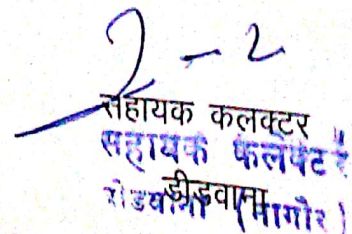 सहायक कलक्टर
सहायक कलेक्टर
डीडवाना
डीडवाना (नागौर)